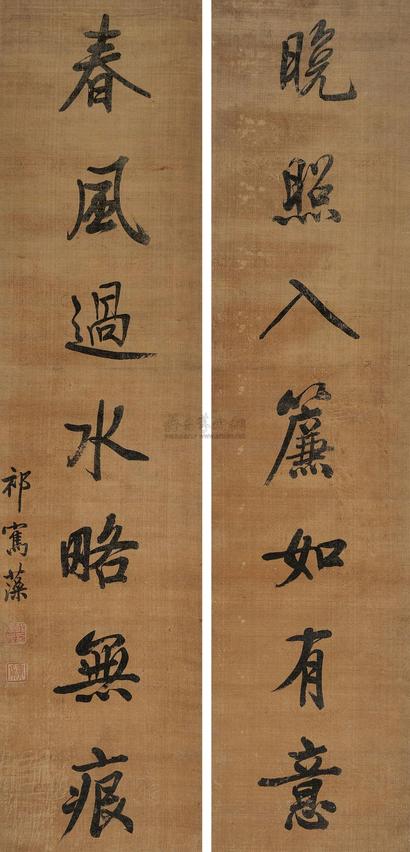 晚照入簾如有意
春風過水略無痕
祁寯藻